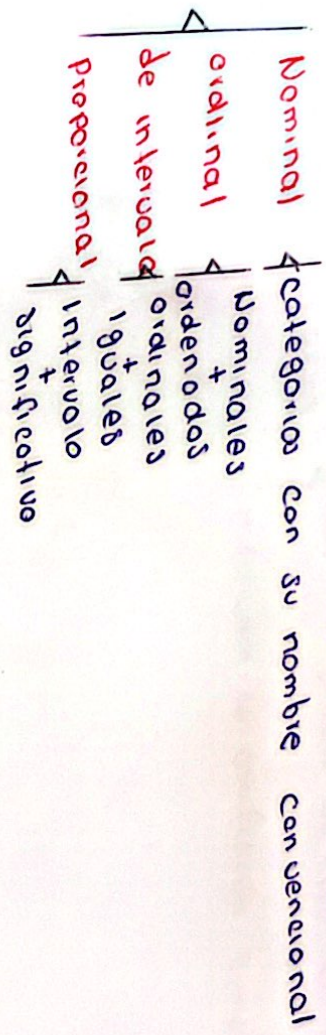 Nominal
categorias con su nombre convencional
ordinal
Nominales
+
ordenados
de intervalo
ordinales
+
iguales
proporcional
Intervalo
+
significativo